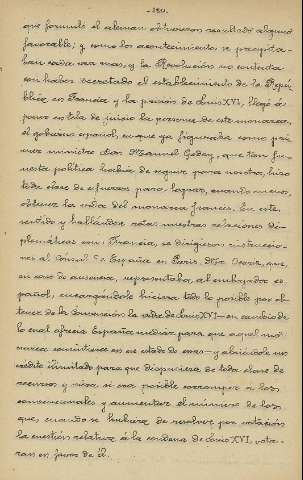 -180-
que formuló el aleman obtuvieron resultado alguno
favorable; y como los acontecimientos se precipita-
ban cada vez mas, y la Revolución no contenta
con haber decretado el establecimiento de la Repú-
blica en Francia y la prision de Luis XVI, llegó á
poner en tela de juicio la persona de este monarca,
el gobierno español, en que ya figuraba como pri-
mer ministro don Manuel Godoy, que tan fu-
nesta política había de seguir para nosotros, hizo
toda clase de esfuerzos para lograr, cuando menos,
obtener la vida del monarca frances. En este
sentido y hallándose rotas nuestras relaciones di-
plomáticas con Francia, se dirigieron instruccio-
nes al Consul de España en Paris, que,
en caso de ausencia, representaba, al embajador es-
pañol, encargándole hiciera todo lo posible por ob-
tener de la Convención la vida de Luis XVI - en cambio de
lo cual ofrecia España mediar para que aquel mo-
narca consintiera en su estado de cosas - y abriéndole un
crédito ilimitado para que dispusiera de toda clase de
recursos y viera si era posible corromper á los
convencionales y aumentar el número de los
que, cuando se hubiera de resolver por votación
la cuestión relativa á la condena de Luis XVI, vota-
ran en favor de él.